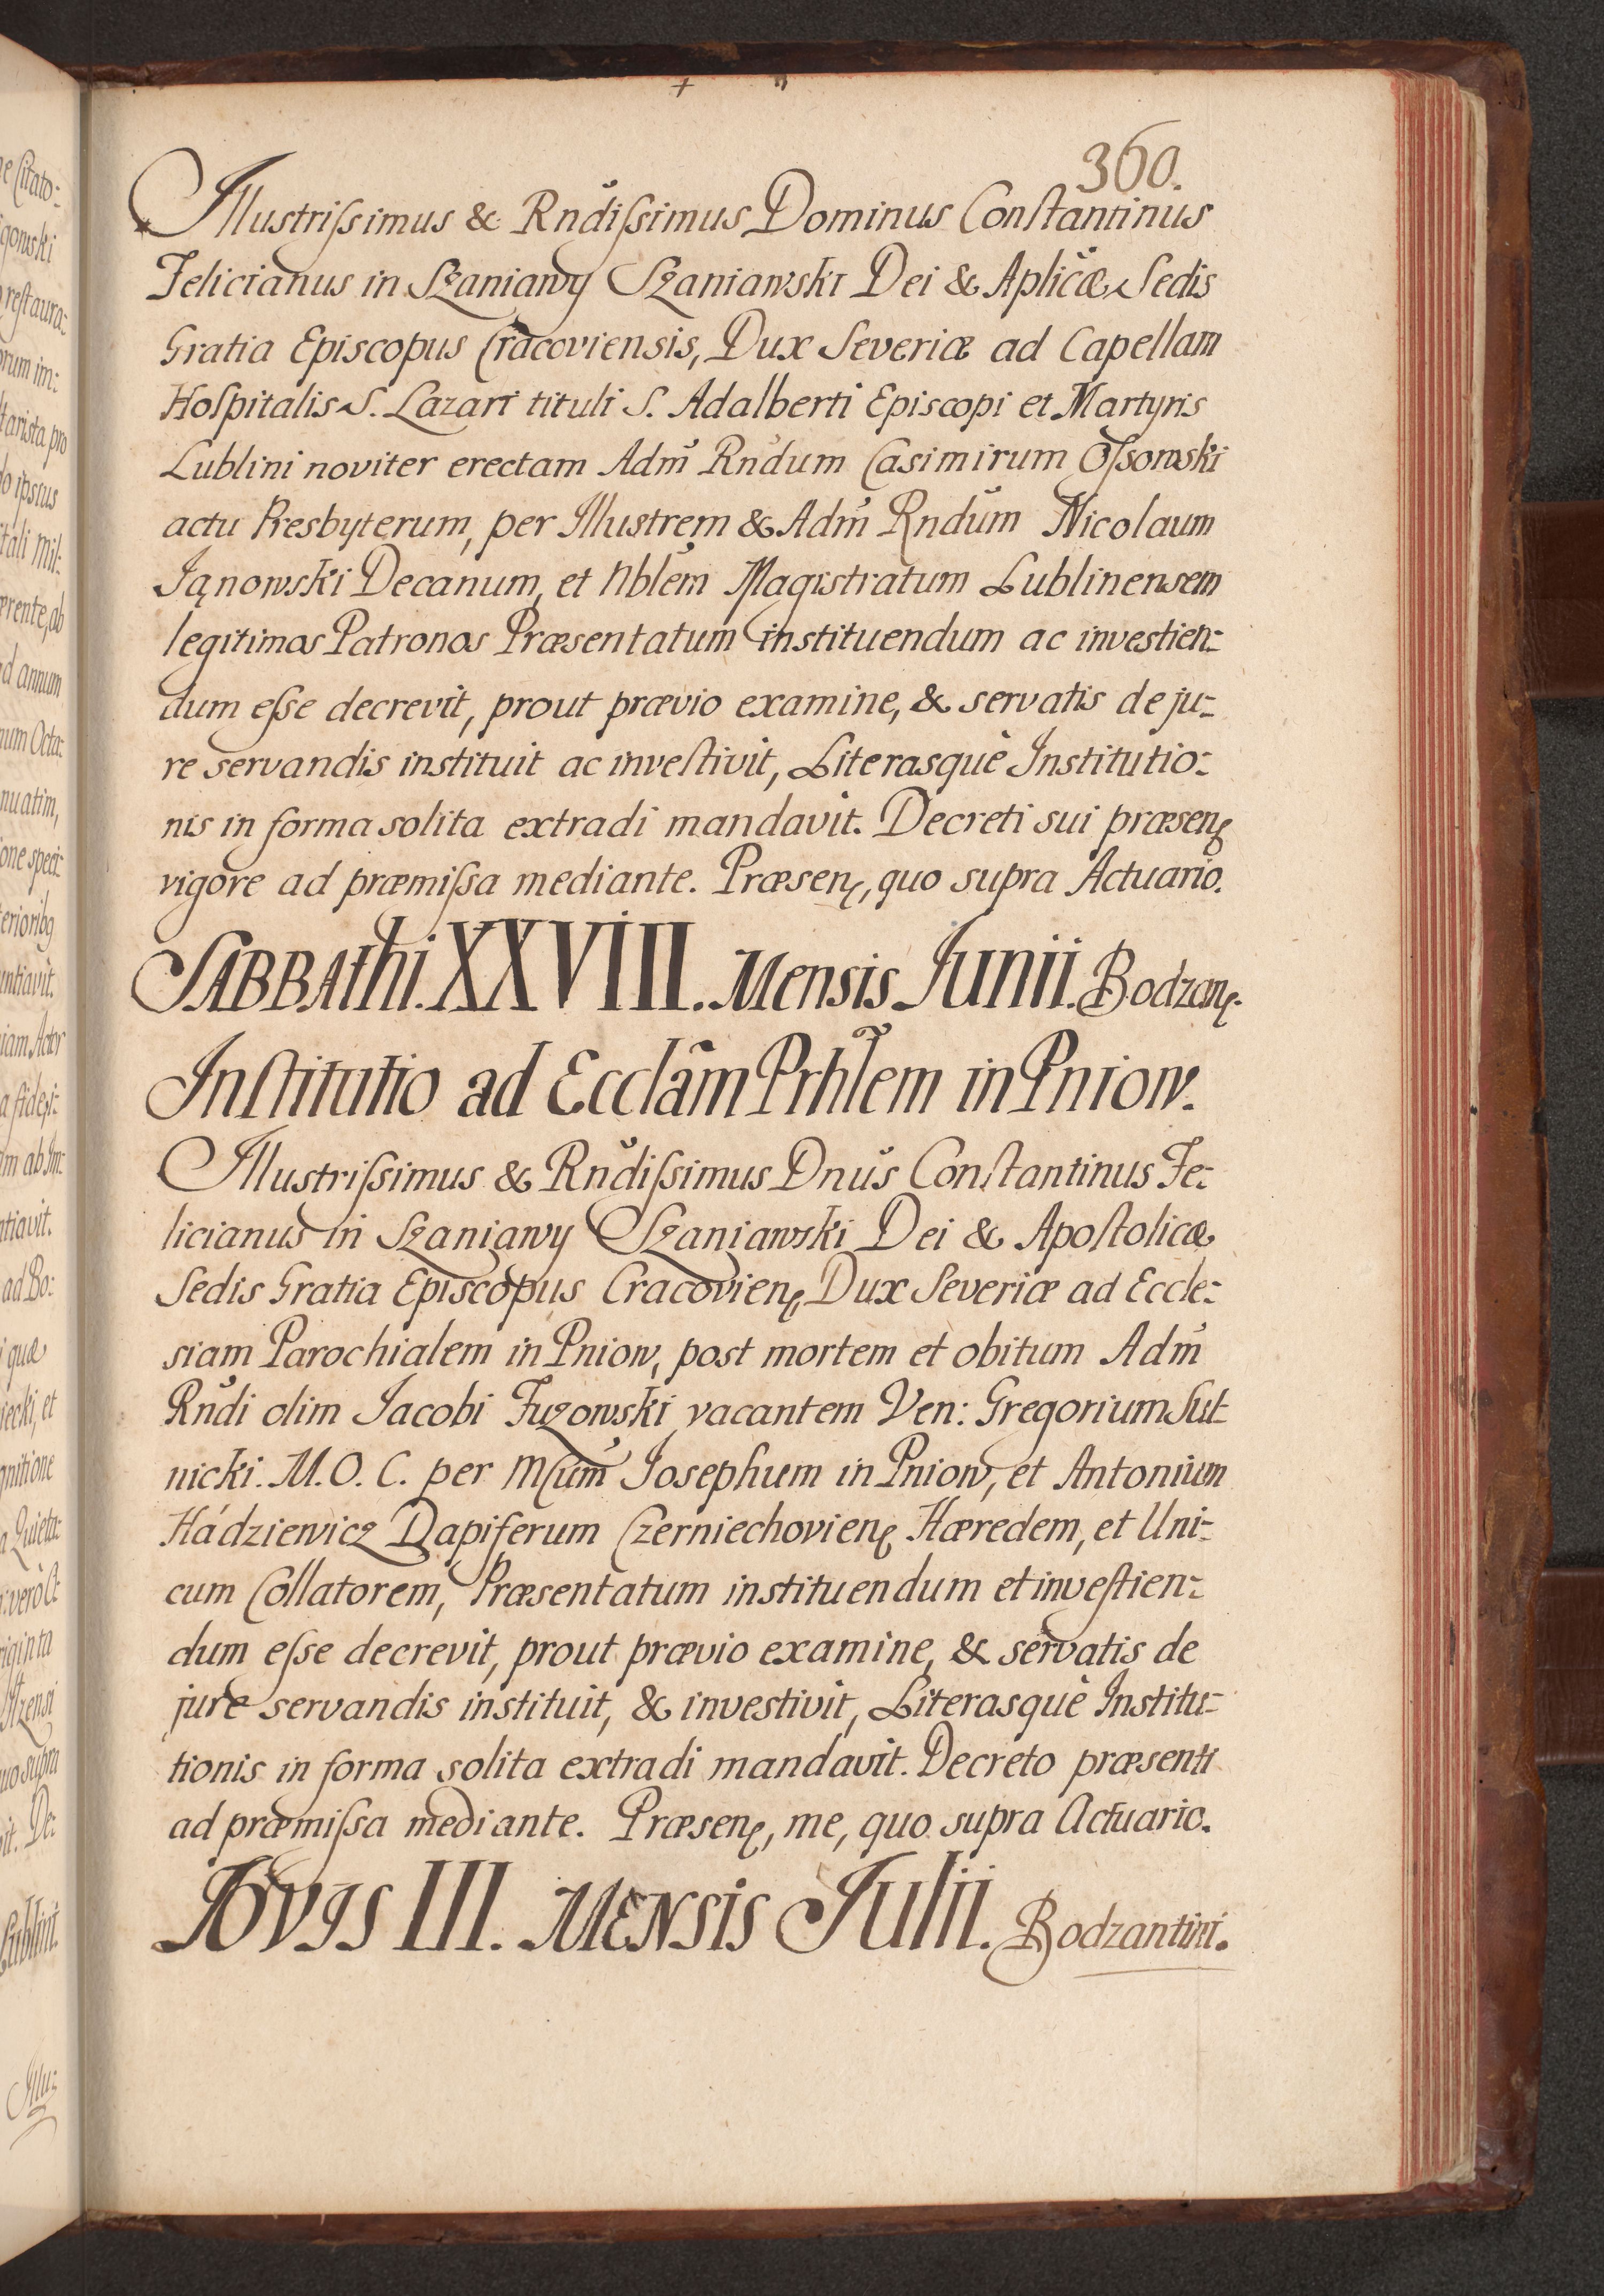 360.
Illustrissimus & Rñdissimus Dominus Constantinus
Felicianus in Szaniawy Szaniawski Dei & Aplicæ Sedis
Gratia Episcopus Cracoviensis, Dux Severiæ ad Capellam
Hospitalis S. Lazari tituli S. Adalberti Episcopi et Martyris
Lublini noviter erectam Adm̃ Rñdum Casimirum Ossowski
actu Presbyterum, per Illustrem & Adm̃ Rndũm Nicolaum
Janowski Decanum, et Nblẽm Magistratum Lublinensem
legitimos Patronos Præsentatum instituendum ac investien:
dum esse decrevit, prout prævio examine, & servatis de ju:
re servandis instituit ac investivit, Literasquè Institutio:
nis in forma solita extradi mandavit. Decreti sui præsenꝭ
vigore ad præmissa mediante. Præsenꝭ, quo supra Actuario.
SABBAthi. XXVIII. Mensis Junii. Bodzanꝭ.
Institutio ad Ecclãm Prhl̃em in Pniow.
Illustrissimus & Rñdissimus Dnũs Constantinus Fe:
licianus in Szaniawy Szaniawski Dei & Apostolicæ
Sedis Gratia Episcopus Cracovienꝭ, Dux Severiæ ad Eccle:
siam Parochialem in Pniow, post mortem et obitum Adm̃
Rñdi olim Jacobi Fuzowski vacantem Ven: Gregorium Sut
nicki. M. O. C. per Mcum̃ Josephum in Pniow, et Antonium
Hádziewicz Dapiferum Czerniechovienꝭ Hæredem, et Uni:
cum Collatorem, Præsentatum instituendum et investien:
dum esse decrevit, prout prævio examine, & servatis de
jure servandis instituit, & investivit, Literasquè Institu:
tionis in forma solita extradi mandavit. Decreto præsenti
ad præmissa mediante. Præsenꝭ, me, quo supra Actuario.
JOVIS III. MENSIS JULII. Bodzantini.